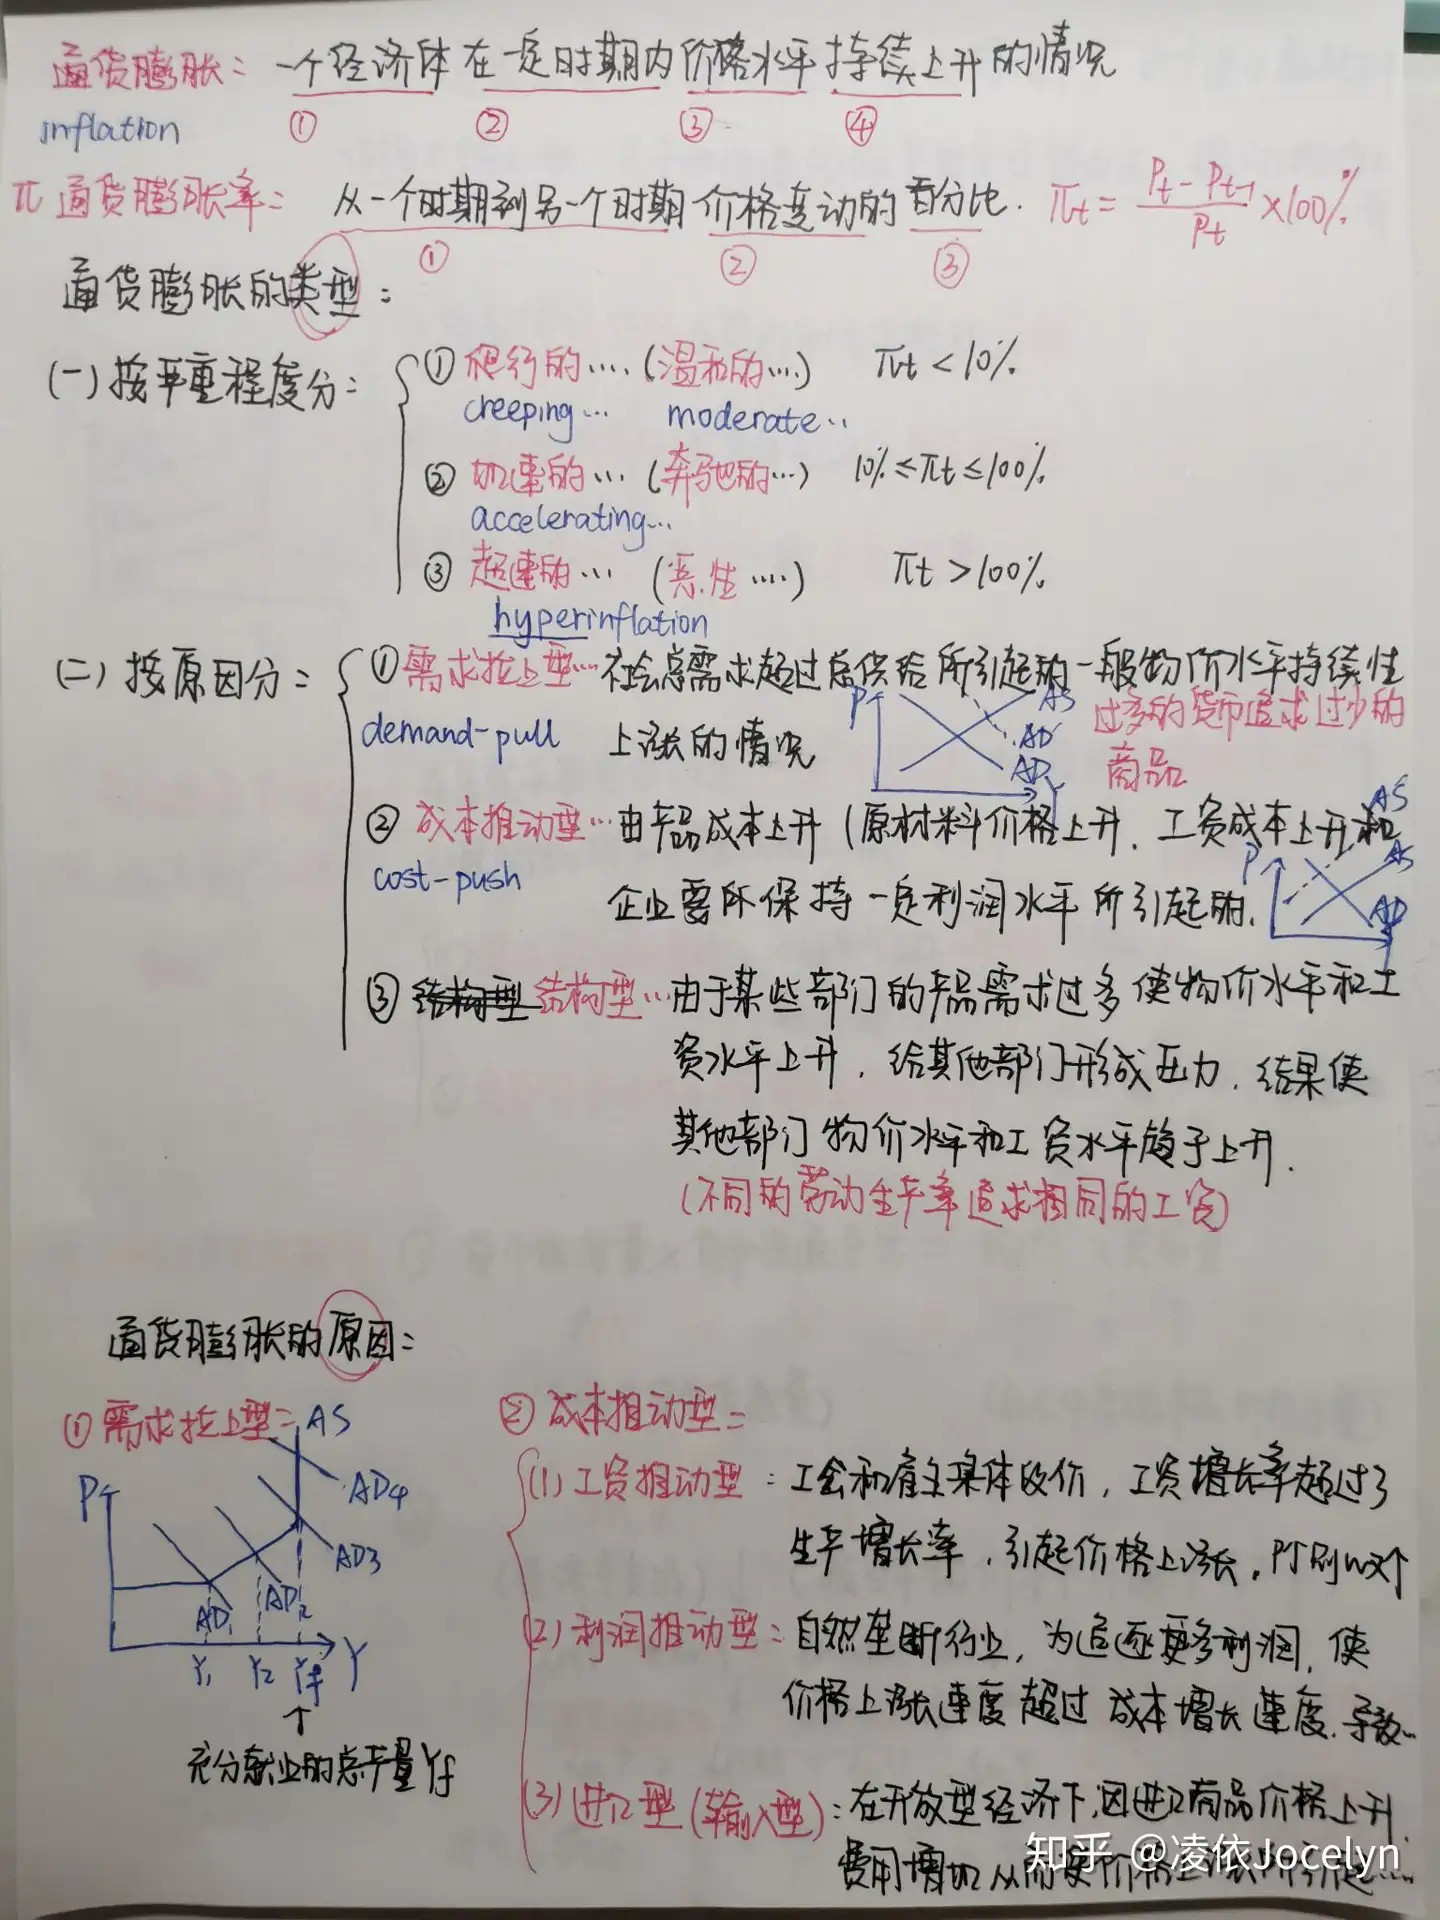 通货膨胀：一个经济体在一定时期内价格水平持续上升的情况
inflation ① ② ③ ④
π 通货膨胀率：从一个时期到另一个时期价格变动的百分比. πt = (Pt - Pt-1)/Pt ×100%
① ② ③
通货膨胀的类型：
(一) 按严重程度分： ① 爬行的…. (温和的…) πt < 10%
creeping… moderate..
② 加速的… (奔驰的…) 10% ≤ πt ≤ 100%
accelerating…
③ 超速的… (恶性….) πt > 100%
hyperinflation
(二) 按原因分： ① 需求拉上型… 社会总需求超过总供给所引起的一般物价水平持续性
demand-pull 上涨的情况
P AS AD' AD Y
过多的货币追求过少的
商品
② 成本推动型… 由产品成本上升 (原材料价格上升. 工资成本上升和
cost-push 企业要保持一定利润水平所引起的.
P AS AS AD
③ 结构型 结构型… 由于某些部门的产品需求过多使物价水平和工
资水平上升. 给其他部门形成压力. 结果使
其他部门物价水平和工资水平趋于上升.
(不同的劳动生产率追求相同的工资)
通货膨胀的原因：
① 需求拉上型：
P AS AD4 AD3 AD2 AD1
Y1 Y2 Yf Y
↑
充分就业的总产量Yf
② 成本推动型：
(1) 工资推动型：工会和雇主集体议价, 工资增长率超过了
生产增长率. 引起价格上涨.
(2) 利润推动型：自然垄断行业, 为追逐更多利润, 使
价格上涨速度超过成本增长速度. 导致…
(3) 进口型 (输入型)：在开放型经济下, 因进口商品价格上升.
费用增加从而使价格
知乎 @凌依Jocelyn